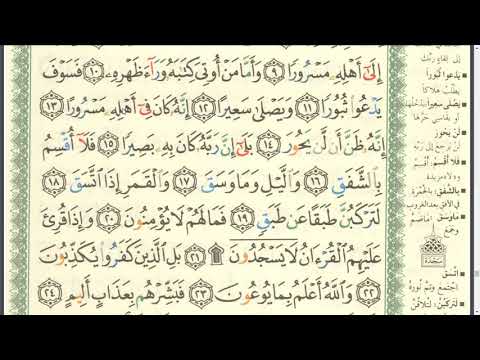 إِلَىٰٓ أَهْلِهِۦ مَسْرُورًا ٩ وَأَمَّا مَنْ أُوتِىَ كِتَٰبَهُۥ وَرَآءَ ظَهْرِهِۦ ١٠ فَسَوْفَ
يَدْعُوا۟ ثُبُورًا ١١ وَيَصْلَىٰ سَعِيرًا ١٢ إِنَّهُۥ كَانَ فِىٓ أَهْلِهِۦ مَسْرُورًا ١٣
إِنَّهُۥ ظَنَّ أَن لَّن يَحُورَ ١٤ بَلَىٰٓ إِنَّ رَبَّهُۥ كَانَ بِهِۦ بَصِيرًا ١٥ فَلَآ أُقْسِمُ
بِٱلشَّفَقِ ١٦ وَٱلَّيْلِ وَمَا وَسَقَ ١٧ وَٱلْقَمَرِ إِذَا ٱتَّسَقَ ١٨
لَتَرْكَبُنَّ طَبَقًا عَن طَبَقٍ ١٩ فَمَا لَهُمْ لَا يُؤْمِنُونَ ٢٠ وَإِذَا قُرِئَ
عَلَيْهِمُ ٱلْقُرْءَانُ لَا يَسْجُدُونَ ۩ ٢١ بَلِ ٱلَّذِينَ كَفَرُوا۟ يُكَذِّبُونَ
٢٢ وَٱللَّهُ أَعْلَمُ بِمَا يُوعُونَ ٢٣ فَبَشِّرْهُم بِعَذَابٍ أَلِيمٍ ٢٤
إلى لقاء ربك
يَدْعُو ثُبُورًا
يطلب هلاكًا
يَصْلَى سَعِيرًا
أو يقاسي حرها
لَن يَحُورَ
لن يرجع إلى ربه
فَلَا أُقْسِمُ
أقسم
ولا مزيدة
بِالشَّفَقِ
بالحمرة
في الأفق بعد الغروب
مَا وَسَقَ
وجمع
سَجْدَة
اتَّسَقَ
اجتمع وتم نوره
لَتَرْكَبُنَّ
لتلاقن